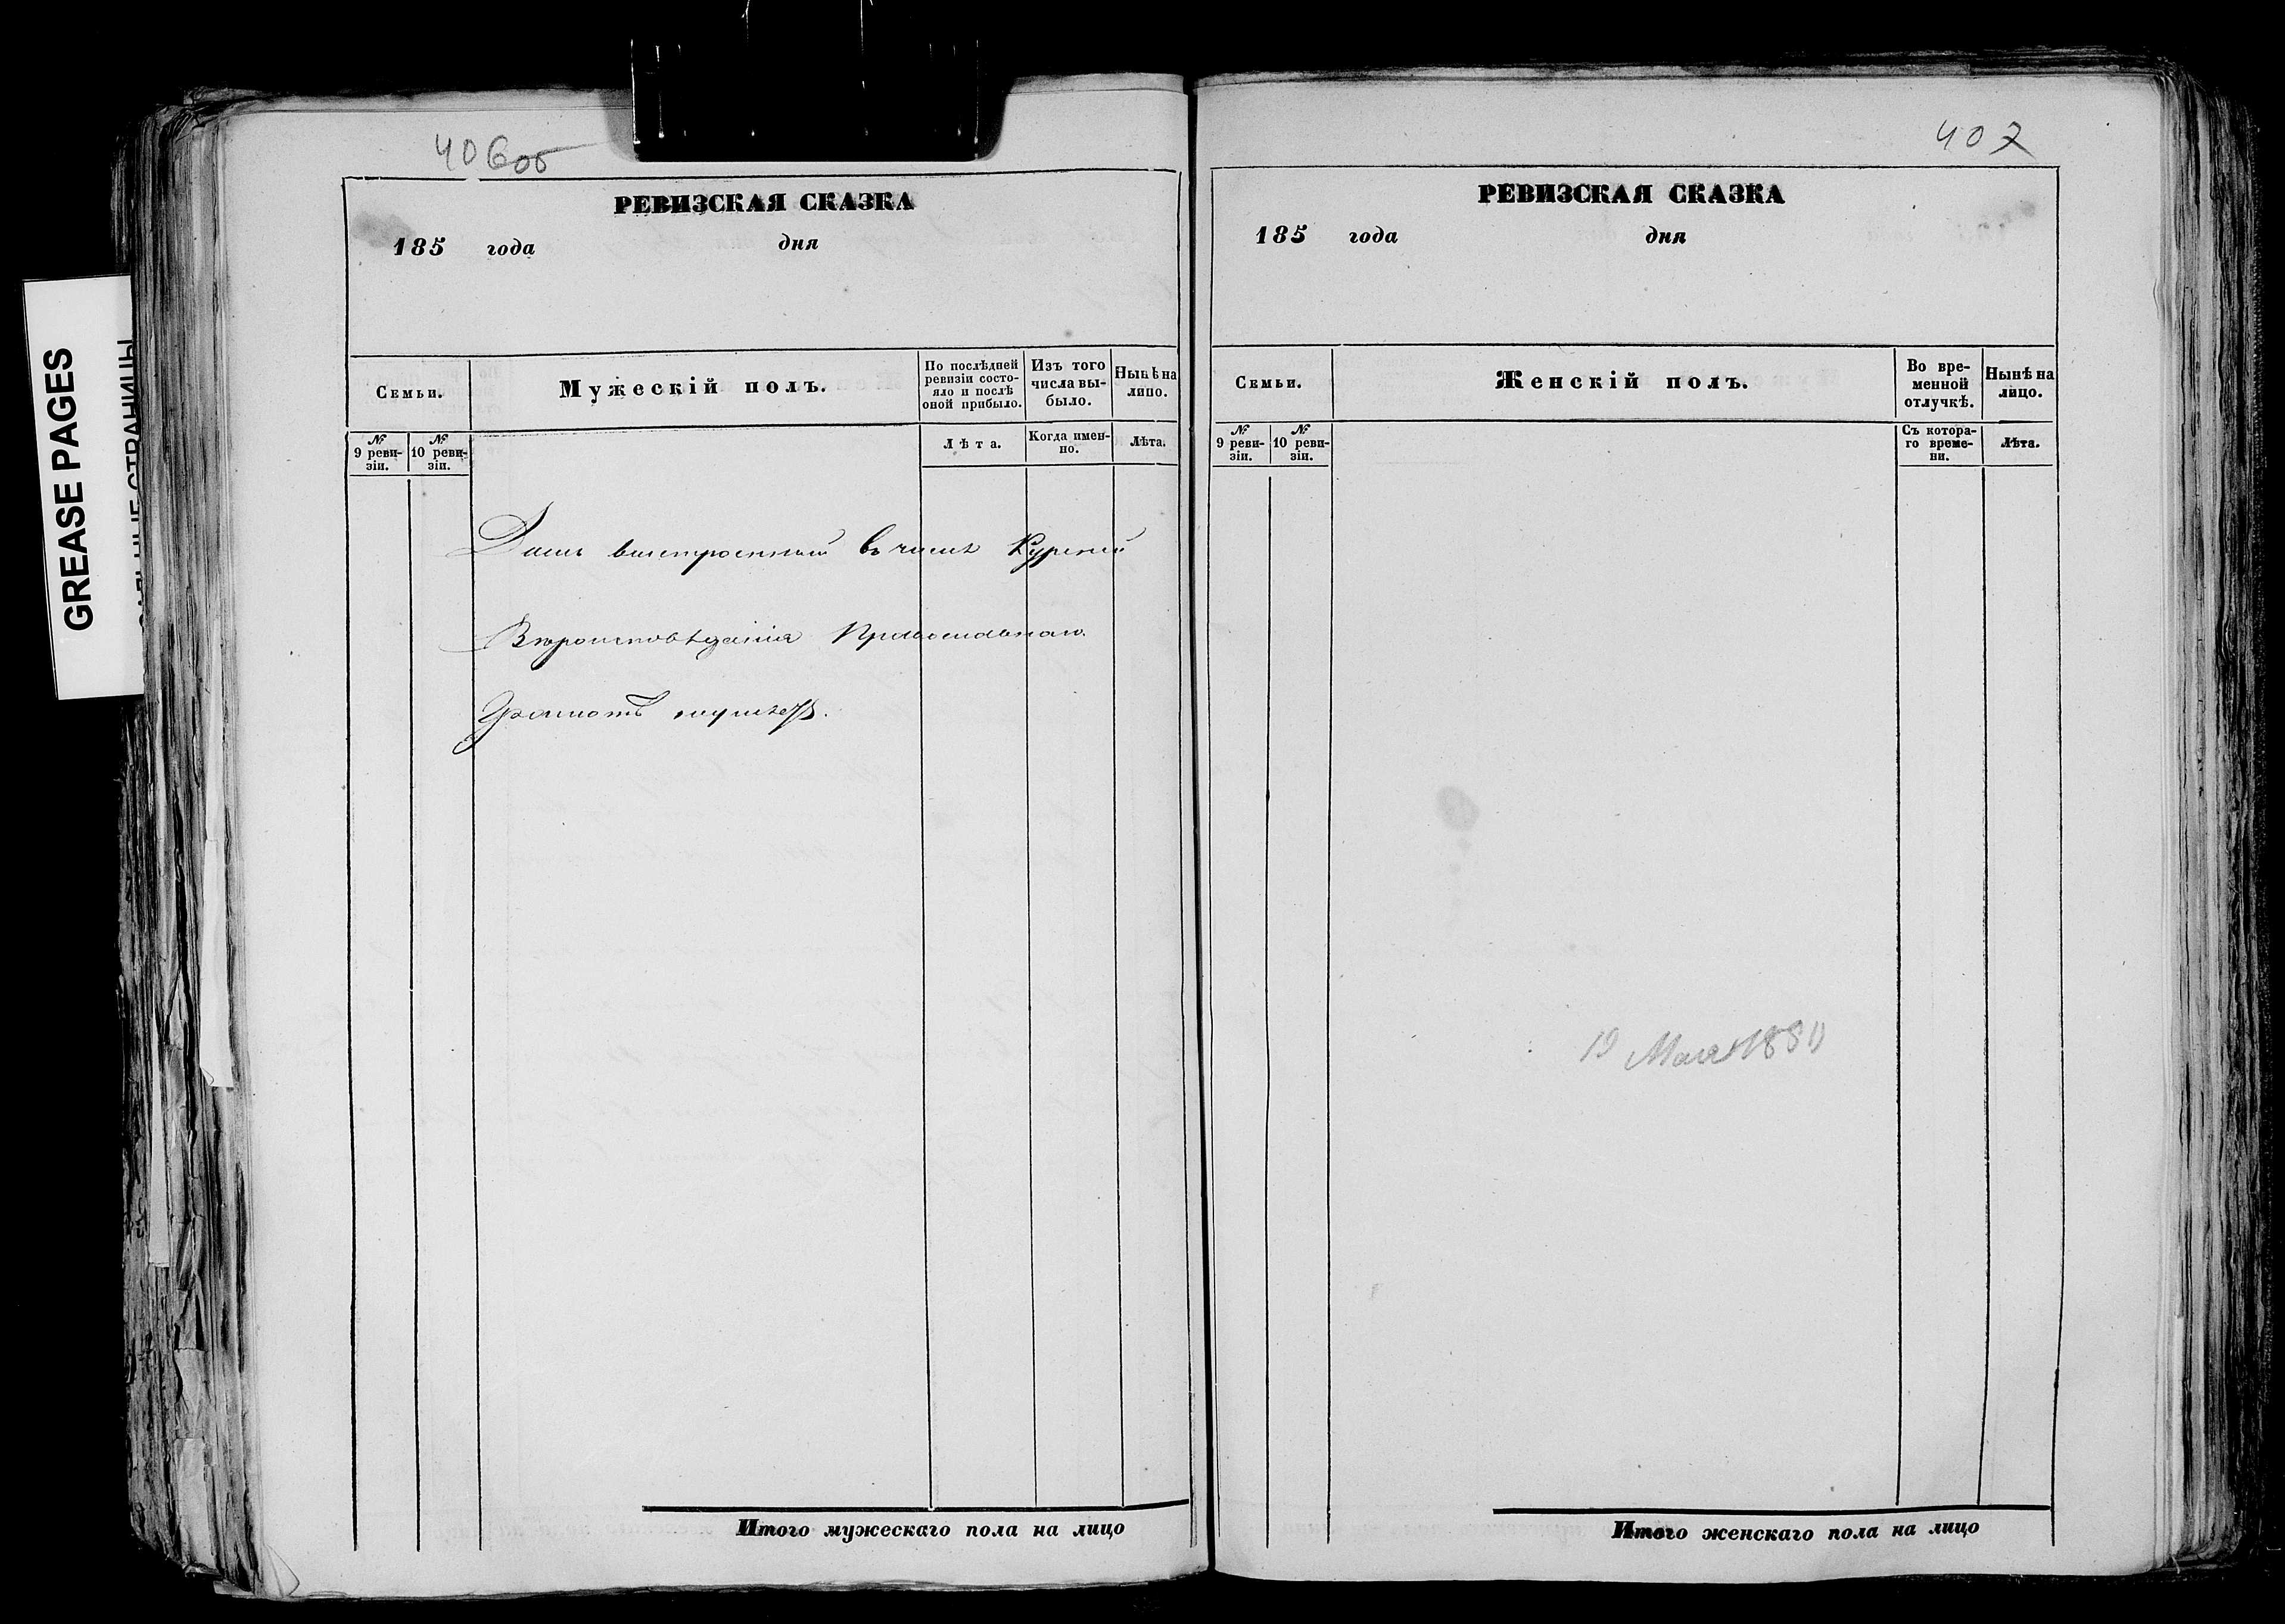 GREASE PAGES
САЛЬНЫЕ СТРАНИЦЫ
406об
РЕВИЗСКАЯ СКАЗКА
185 года дня
Семьи. Мужескій полъ. По послѣдней ревизіи состояло и послѣ оной прибыло. Изъ того числа выбыло. Нынѣ на лицо.
№ 9 ревизіи. № 10 ревизіи. Лѣта. Когда именно. Лѣта.
Домъ выстроенный въ числѣ
Вѣроисповѣданія Православнаго.
Грамотѣ
Итого мужескаго пола на лицо
407
РЕВИЗСКАЯ СКАЗКА
185 года дня
Семьи. Женскій полъ. Во временной отлучкѣ. Нынѣ на лицо.
№ 9 ревизіи. № 10 ревизіи. Съ котораго времени. Лѣта.
19 Мая
Итого женскаго пола на лицо